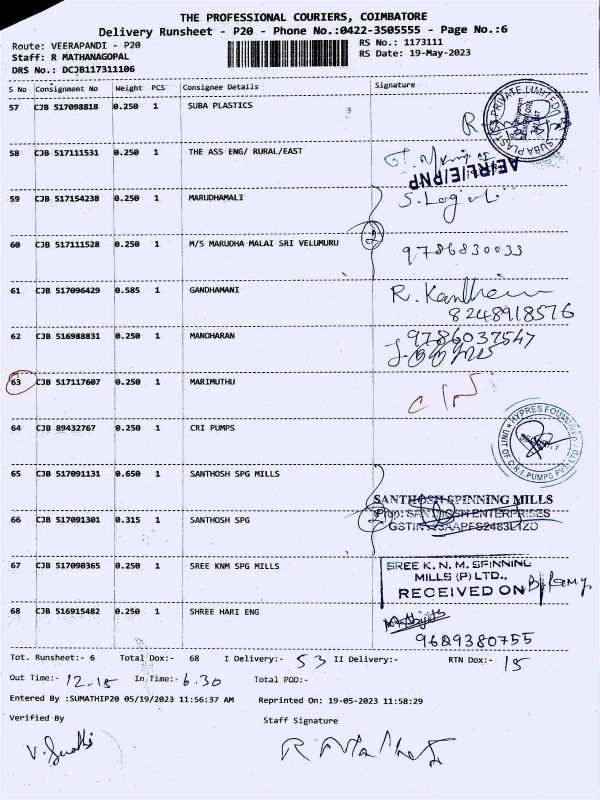 THE PROFESSIONAL COURIERS, COIMBATORE
Delivery Runsheet - P20 - Phone No.:0422-3505555 - Page No.:6
Route: VEERAPANDI - P20
RS No.: 1173111
Staff: R MATHANAGOPAL
RS Date: 19-May-2023
DRS No.: DCJB117311106
S No Consignment No Weight PCS Consignee Details Signature
57 CJB 517098818 0.250 1 SUBA PLASTICS
58 CJB 517111531 0.250 1 THE ASS ENG/ RURAL/EAST
AE/RL/E/PNP
59 CJB 517154238 0.250 1 MARUDHAMALI
60 CJB 517111528 0.250 1 M/S MARUDHA MALAI SRI VELUMURU 2 9786830033
61 CJB 517096429 0.585 1 GANDHAMANI
8248918576
62 CJB 516988831 0.250 1 MANOHARAN 9786037547
63 CJB 517117607 0.250 1 MARIMUTHU
64 CJB 89432767 0.250 1 CRI PUMPS
65 CJB 517091131 0.650 1 SANTHOSH SPG MILLS
SANTHOSH SPINNING MILLS
66 CJB 517091301 0.315 1 SANTHOSH SPG 2
Prop: SANTHOSH ENTERPRISES
67 CJB 517090365 0.250 1 SREE KNM SPG MILLS
SREE K. N. M. SPINNING
MILLS (P) LTD.,
RECEIVED ON
68 CJB 516915482 0.250 1 SHREE HARI ENG
9689380755
Tot. Runsheet:- 6 Total Dox:- 68 I Delivery:- 53 II Delivery:- RTN Dox:- 15
Out Time:- 12.15 In Time:- 6.30 Total POD:-
Entered By :SUMATHIP20 05/19/2023 11:56:37 AM Reprinted On: 19-05-2023 11:58:29
Verified By Staff Signature